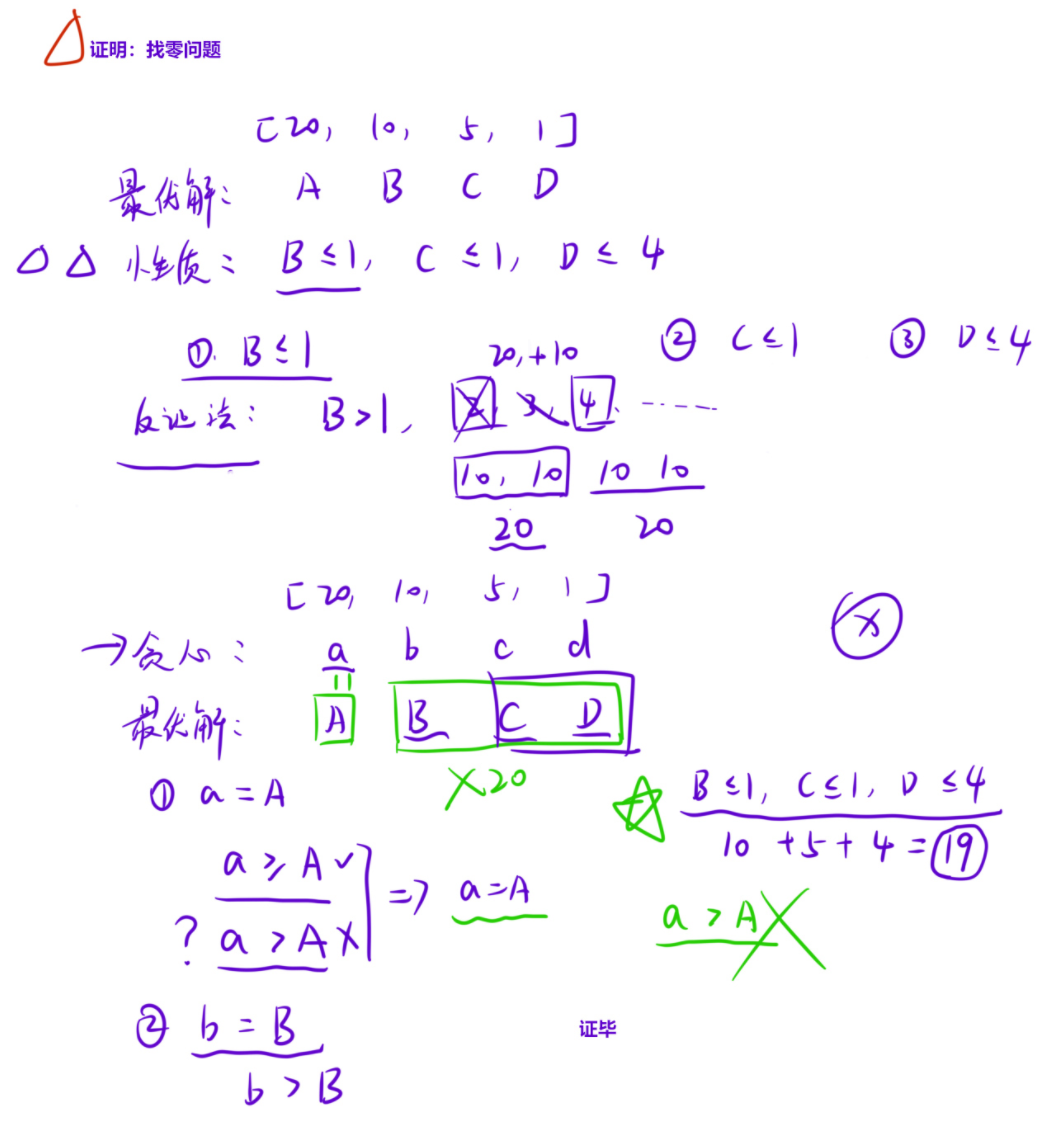 证明：找零问题
[20, 10, 5, 1]
最优解： A B C D
性质： B ≤ 1, C ≤ 1, D ≤ 4
①. B ≤ 1 20, +10 ② C ≤ 1 ③ D ≤ 4
反证法： B > 1, 2, 3, 4, ……
10, 10 10 10
20 20
[20, 10, 5, 1]
→ 贪心： a b c d
x
=
最优解： A B C D
① a = A X20 B ≤ 1, C ≤ 1, D ≤ 4
10 + 5 + 4 = 19
a ≥ A ✓
=> a = A
? a > A X
a > A X
② b = B 证毕
b > B